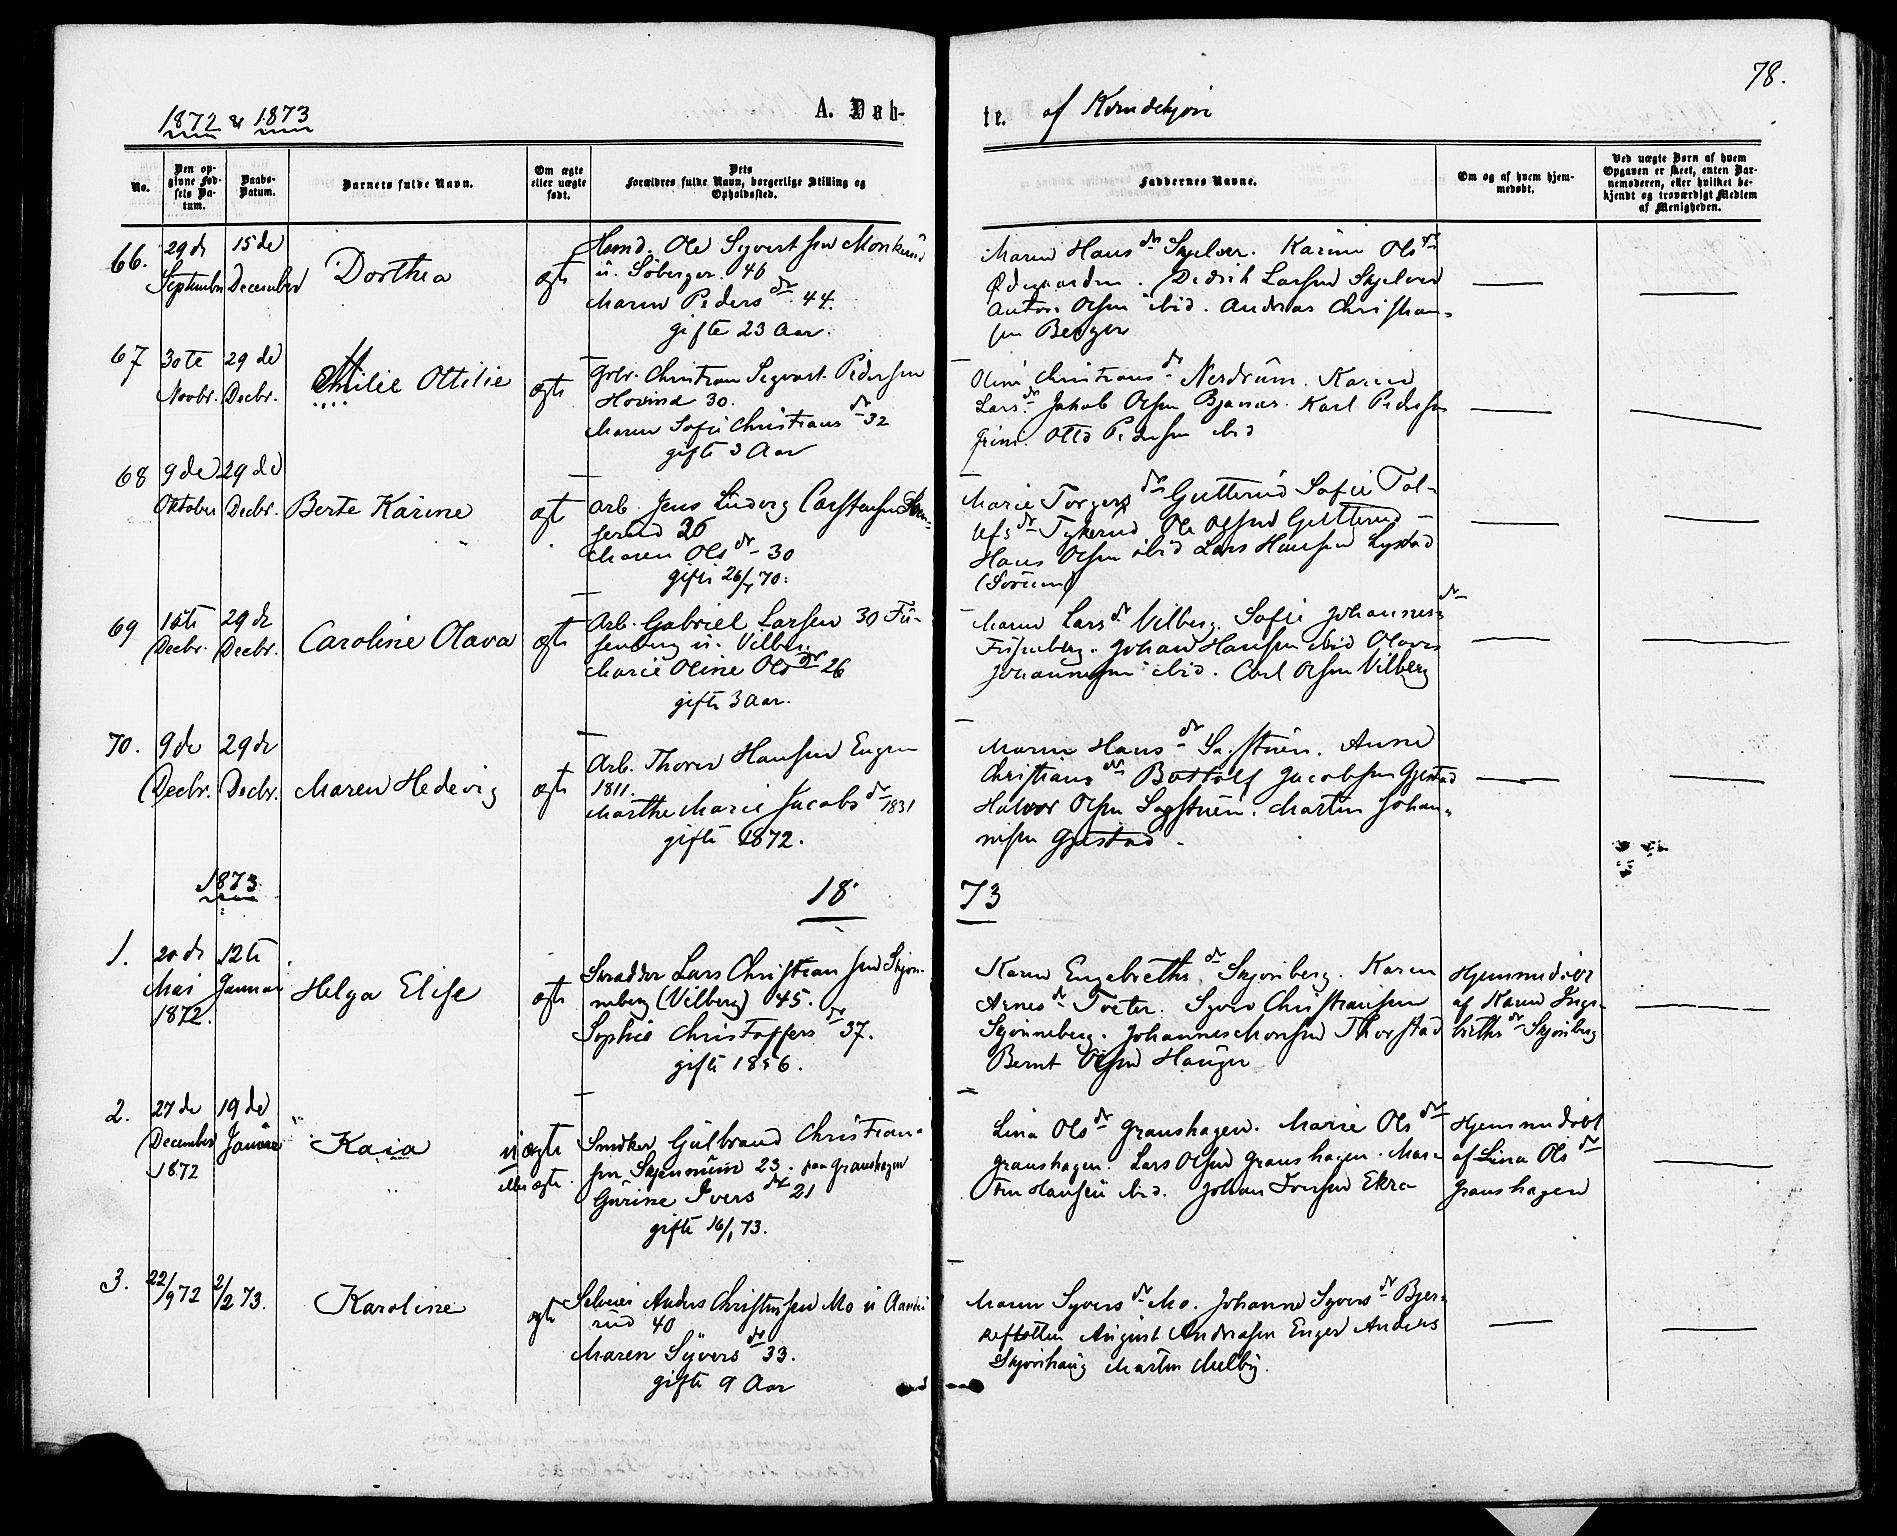 78.
1872 & 1873
A. Døb-
te. af Kvindekjøn
No.
Den op-
givne Fød-
sels Da-
tum.
Daabs-
Datum.
Barnets fulde Navn.
Om ægte
eller uægte
født.
Dets
Forældres fulde Navn, borgerlige Stilling og
Opholdssted.
Faddernes Navne.
Om og af hvem hjem-
medøbt.
Ved uægte Børn af hvem
Opgaven er skeet, enten Bar-
nemoderen, eller hvilket be-
kjendt og troværdigt Medlem
af Menigheden.
66.
29de
September
15de
December
Dorthea
ægte
Ole Syvertsen
u. Soberger. 46
Maren Peders dr 44.
gifte 23 Aar.
Maren Hans dr Karine Ols dr
Ødegaarden. Didrik Larsen
Anton Olsen ibid. Andreas Christian-
sen Berger
67
30te
Novbr.
29de
Decbr.
Ottilie
ægte
Christian Sigvart Pedersen
Hovind 30.
Maren Sofie Christians dr 32
gifte 3 Aar
Oline Christians dr Nerdrum. Karen
Lars dr Jakob Olsen Karl Pedersen
Otto Pedersen ibid
68
9de
Oktober
29de
Decbr.
Berte Karine
ægte
Arb. Jens Ludvig Carstensen
36
Maren Ols dr 30
gifte 26/ 70.
Marie Torgers dr Gutterud Sofie Tol-
lefs dr Tykerud Ole Olsen Gutterud
Hans Olsen ibid Lars Hansen Lystad
(Sørum)
69
Decbr.
29de
Decbr.
Caroline Olava
ægte
Arb. Gabriel Larsen 30 Fu-
senberg u. Vilberg
Marie Oline Ols dr 26
gifte 3 Aar.
Maren Lars dr Vilberg. Sofie Johannes dr
Fusenberg. Johan Hansen ibid Olaves
Johannesen ibid. Carl Olsen Vilberg
70.
9de
Decbr.
29de
Decbr.
Maren Hedevig
ægte
Arb. Thorer Hansen Engen
1811.
Marthe Marie Jacobs dr 1831
gifte 1872.
Maren Hans dr Sagstuen. Anne
Christians dr Bottolf Jacobsen Gjestad
Halvor Olsen Sagstuen. Martin Johan-
nesen Gjestad.
1873
18
73
1.
20de
Mai
1872.
12te
Januar
Helga Elise
ægte
Skrædder Lars Christiansen Skjøn-
neberg (Vilberg) 45.
Sophie Christoffers dr 37.
gifte 1856.
Karen Engebreths dr Skjønberg. Karen
Arnes dr Toeter. Syver Christiansen
Skjønneberg. Johannes Monsen Thorstad
Bernt Olsen Haugen
Hjemmedøbt
af Karen Inge-
breths dr Skjønberg
2.
27de
December
1872
19de
Januar
Kaia
uægte
eller ægte.
Snedker Gulbrand Christian-
sen Skjennum 23. paa Granshagen
Gurine Ivers dr 21
gifte 16/1 73.
Lina Ols dr Granshagen. Marie Ols dr
Granshagen. Lars Olsen Granshagen. Mar-
tin Hansen ibid. Johan Iversen Ekra
Hjemmedøbt
af Lina Ols dr
Granshagen
3.
22/9 72
2/2 73.
Karoline
ægte
Selveier Anders Christensen Mo u
rud 40
Maren Syvers dr 33.
gifte 9 Aar
Maren Syvers dr Mo. Johanne Syvers dr Bjer-
August Andreasen Enger Anders
Skjønhaug Martin Melby.